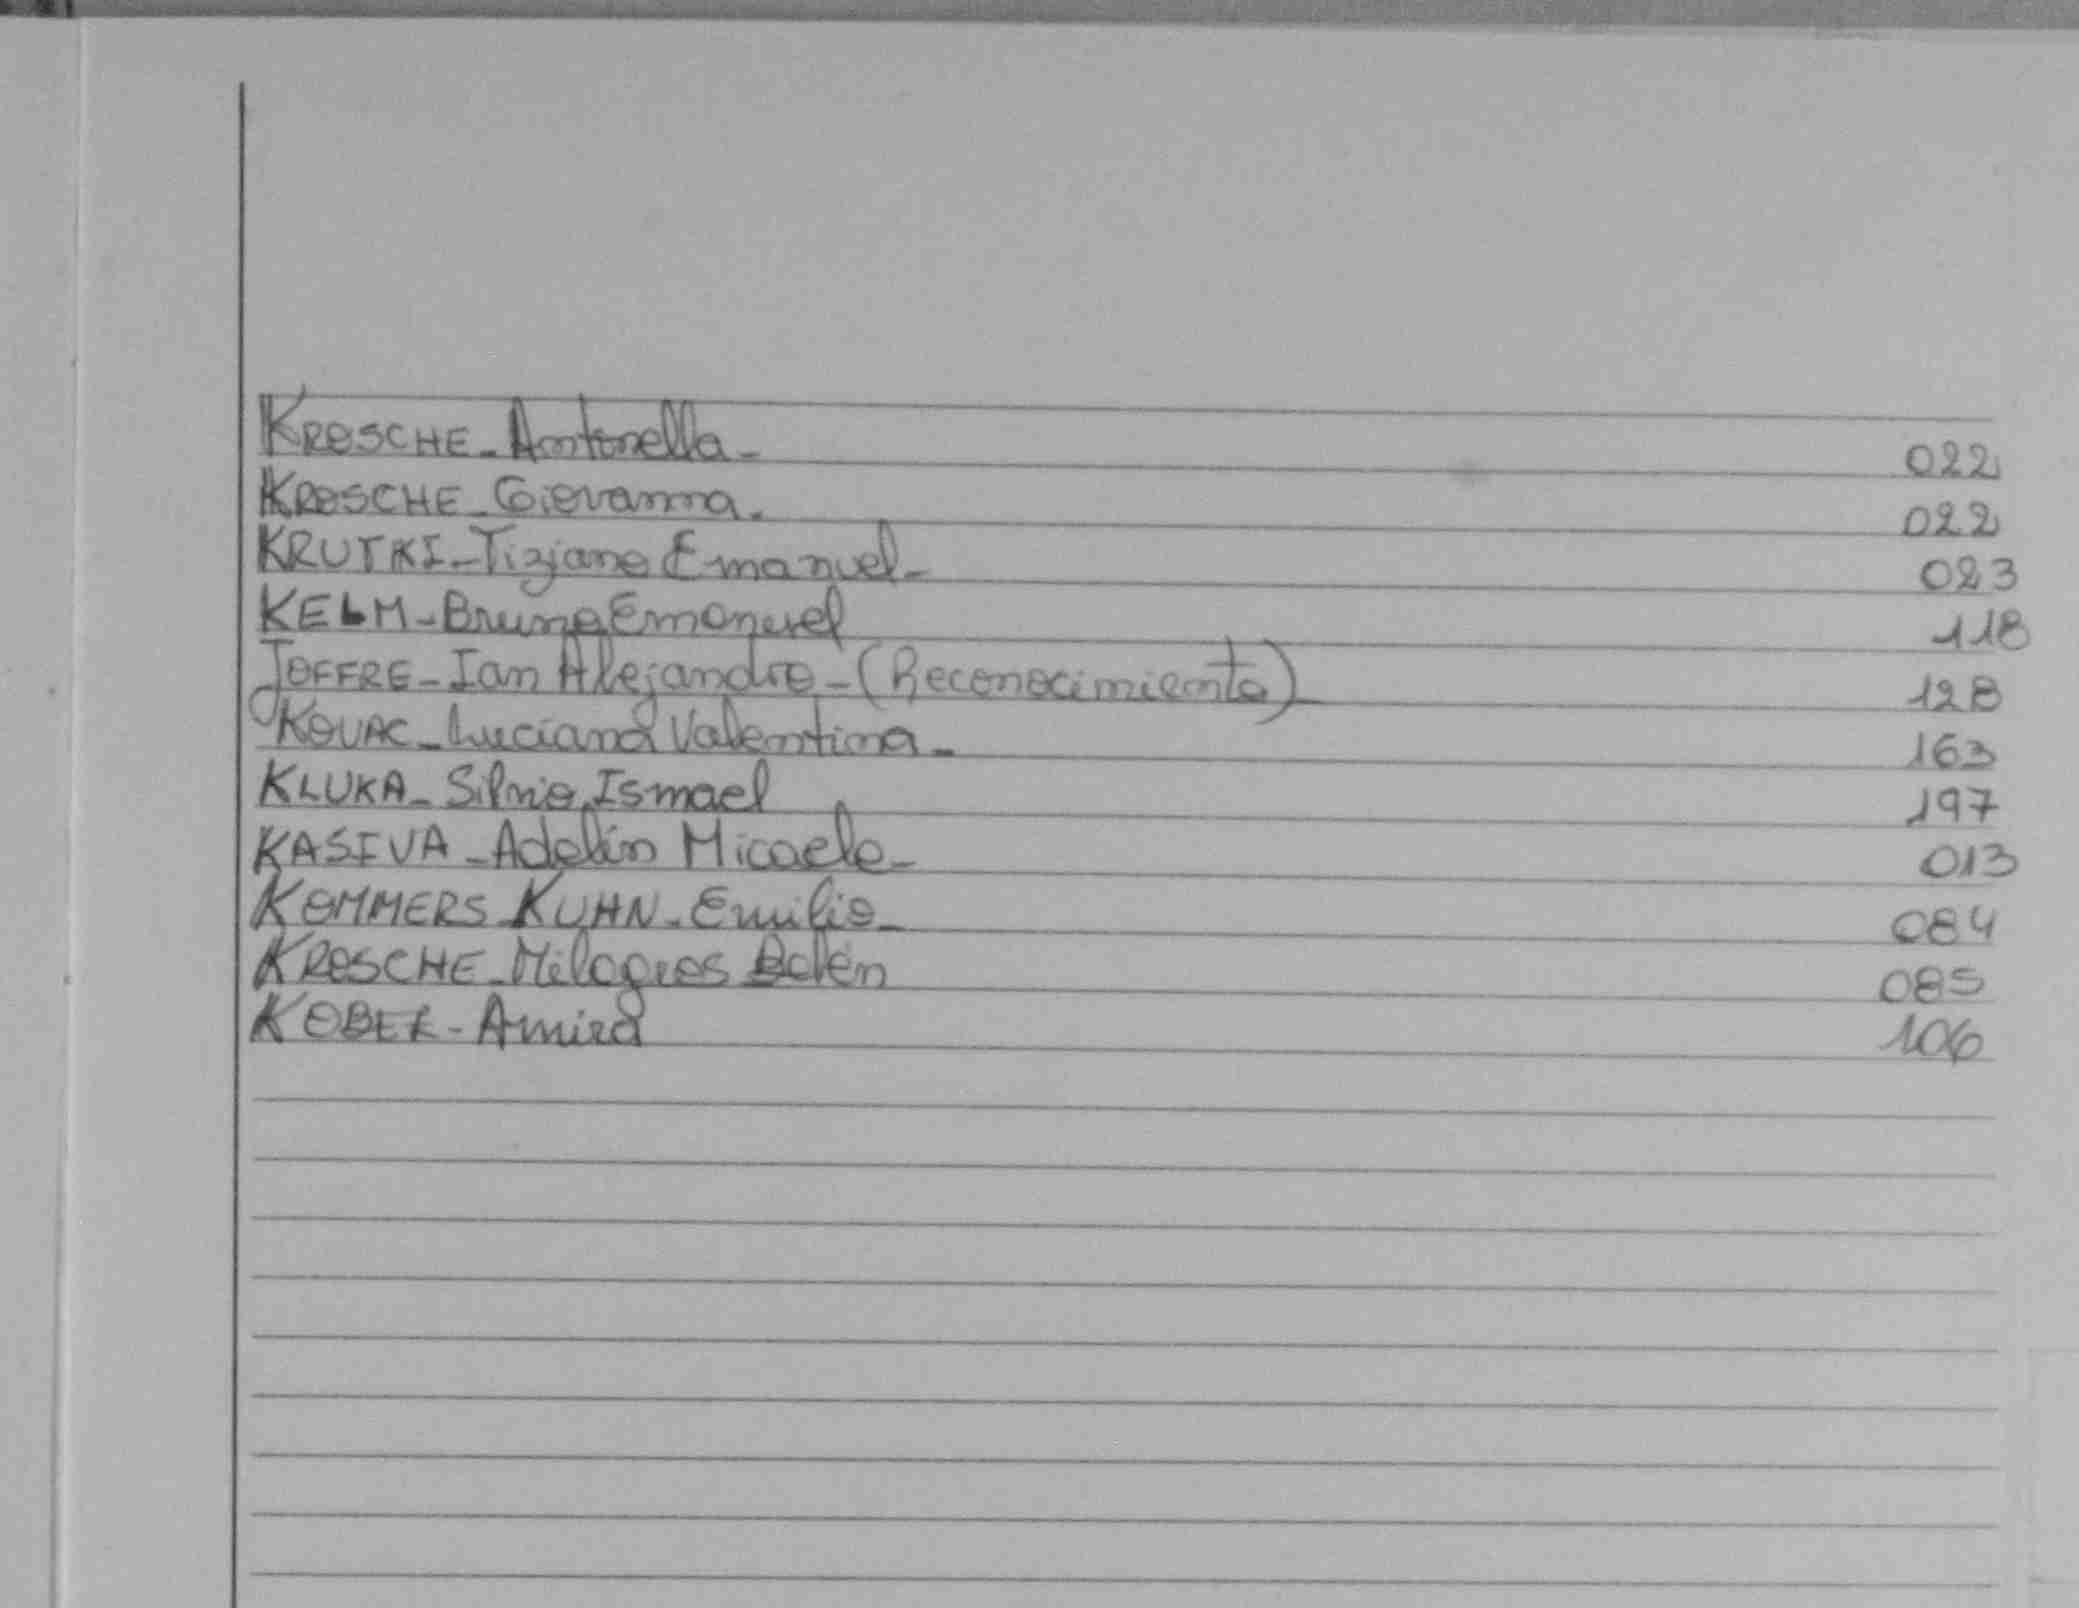 KROSCHE - Antonella - 022
KROSCHE - Giovanna. 022
KRUTKI - Tiziano Emanuel - 023
KELM - Bruno Emanuel 118
JOFFRE - Ian Alejandro - (Reconocimiento) 128
KOVAC - Luciana Valentina - 163
KLUKA - Silvio Ismael 197
KASIVA - Adelin Micaela - 013
KOMMERS KUHN - Emilio - 084
KROSCHE - Milagros Belén 085
KOBER - Amira 106